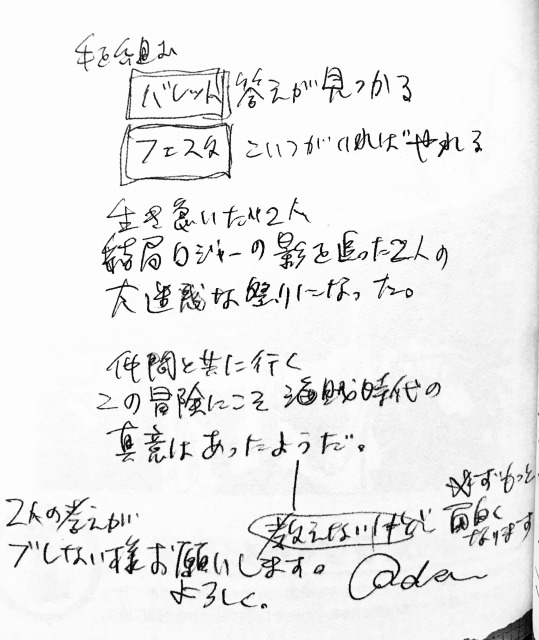 手を組む
バレット 答えが見つかる
フェスタ こいつがいればやれる
生き急いだ2人
結局ロジャーの影を追った2人の
大迷惑な祭りになった。
仲間と共に行く
この冒険にこそ海賊時代の
真意はあったようだ。
教えないけど
必ずもっと
面白く
なります
2人の考えが
ブレない様お願いします。
よろしく。
Oda